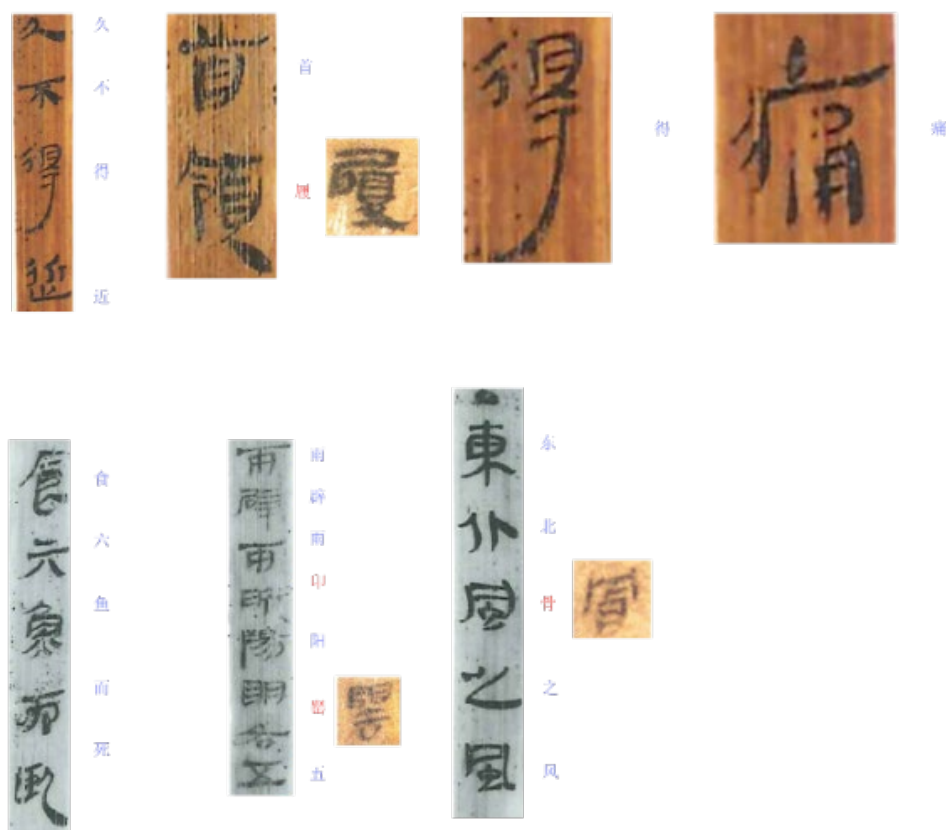 久
不
得
近
首
履
得
痛
食
六
鱼
而
死
雨
辟
雨
卬
阳
罂
五
东
北
骨
之
风